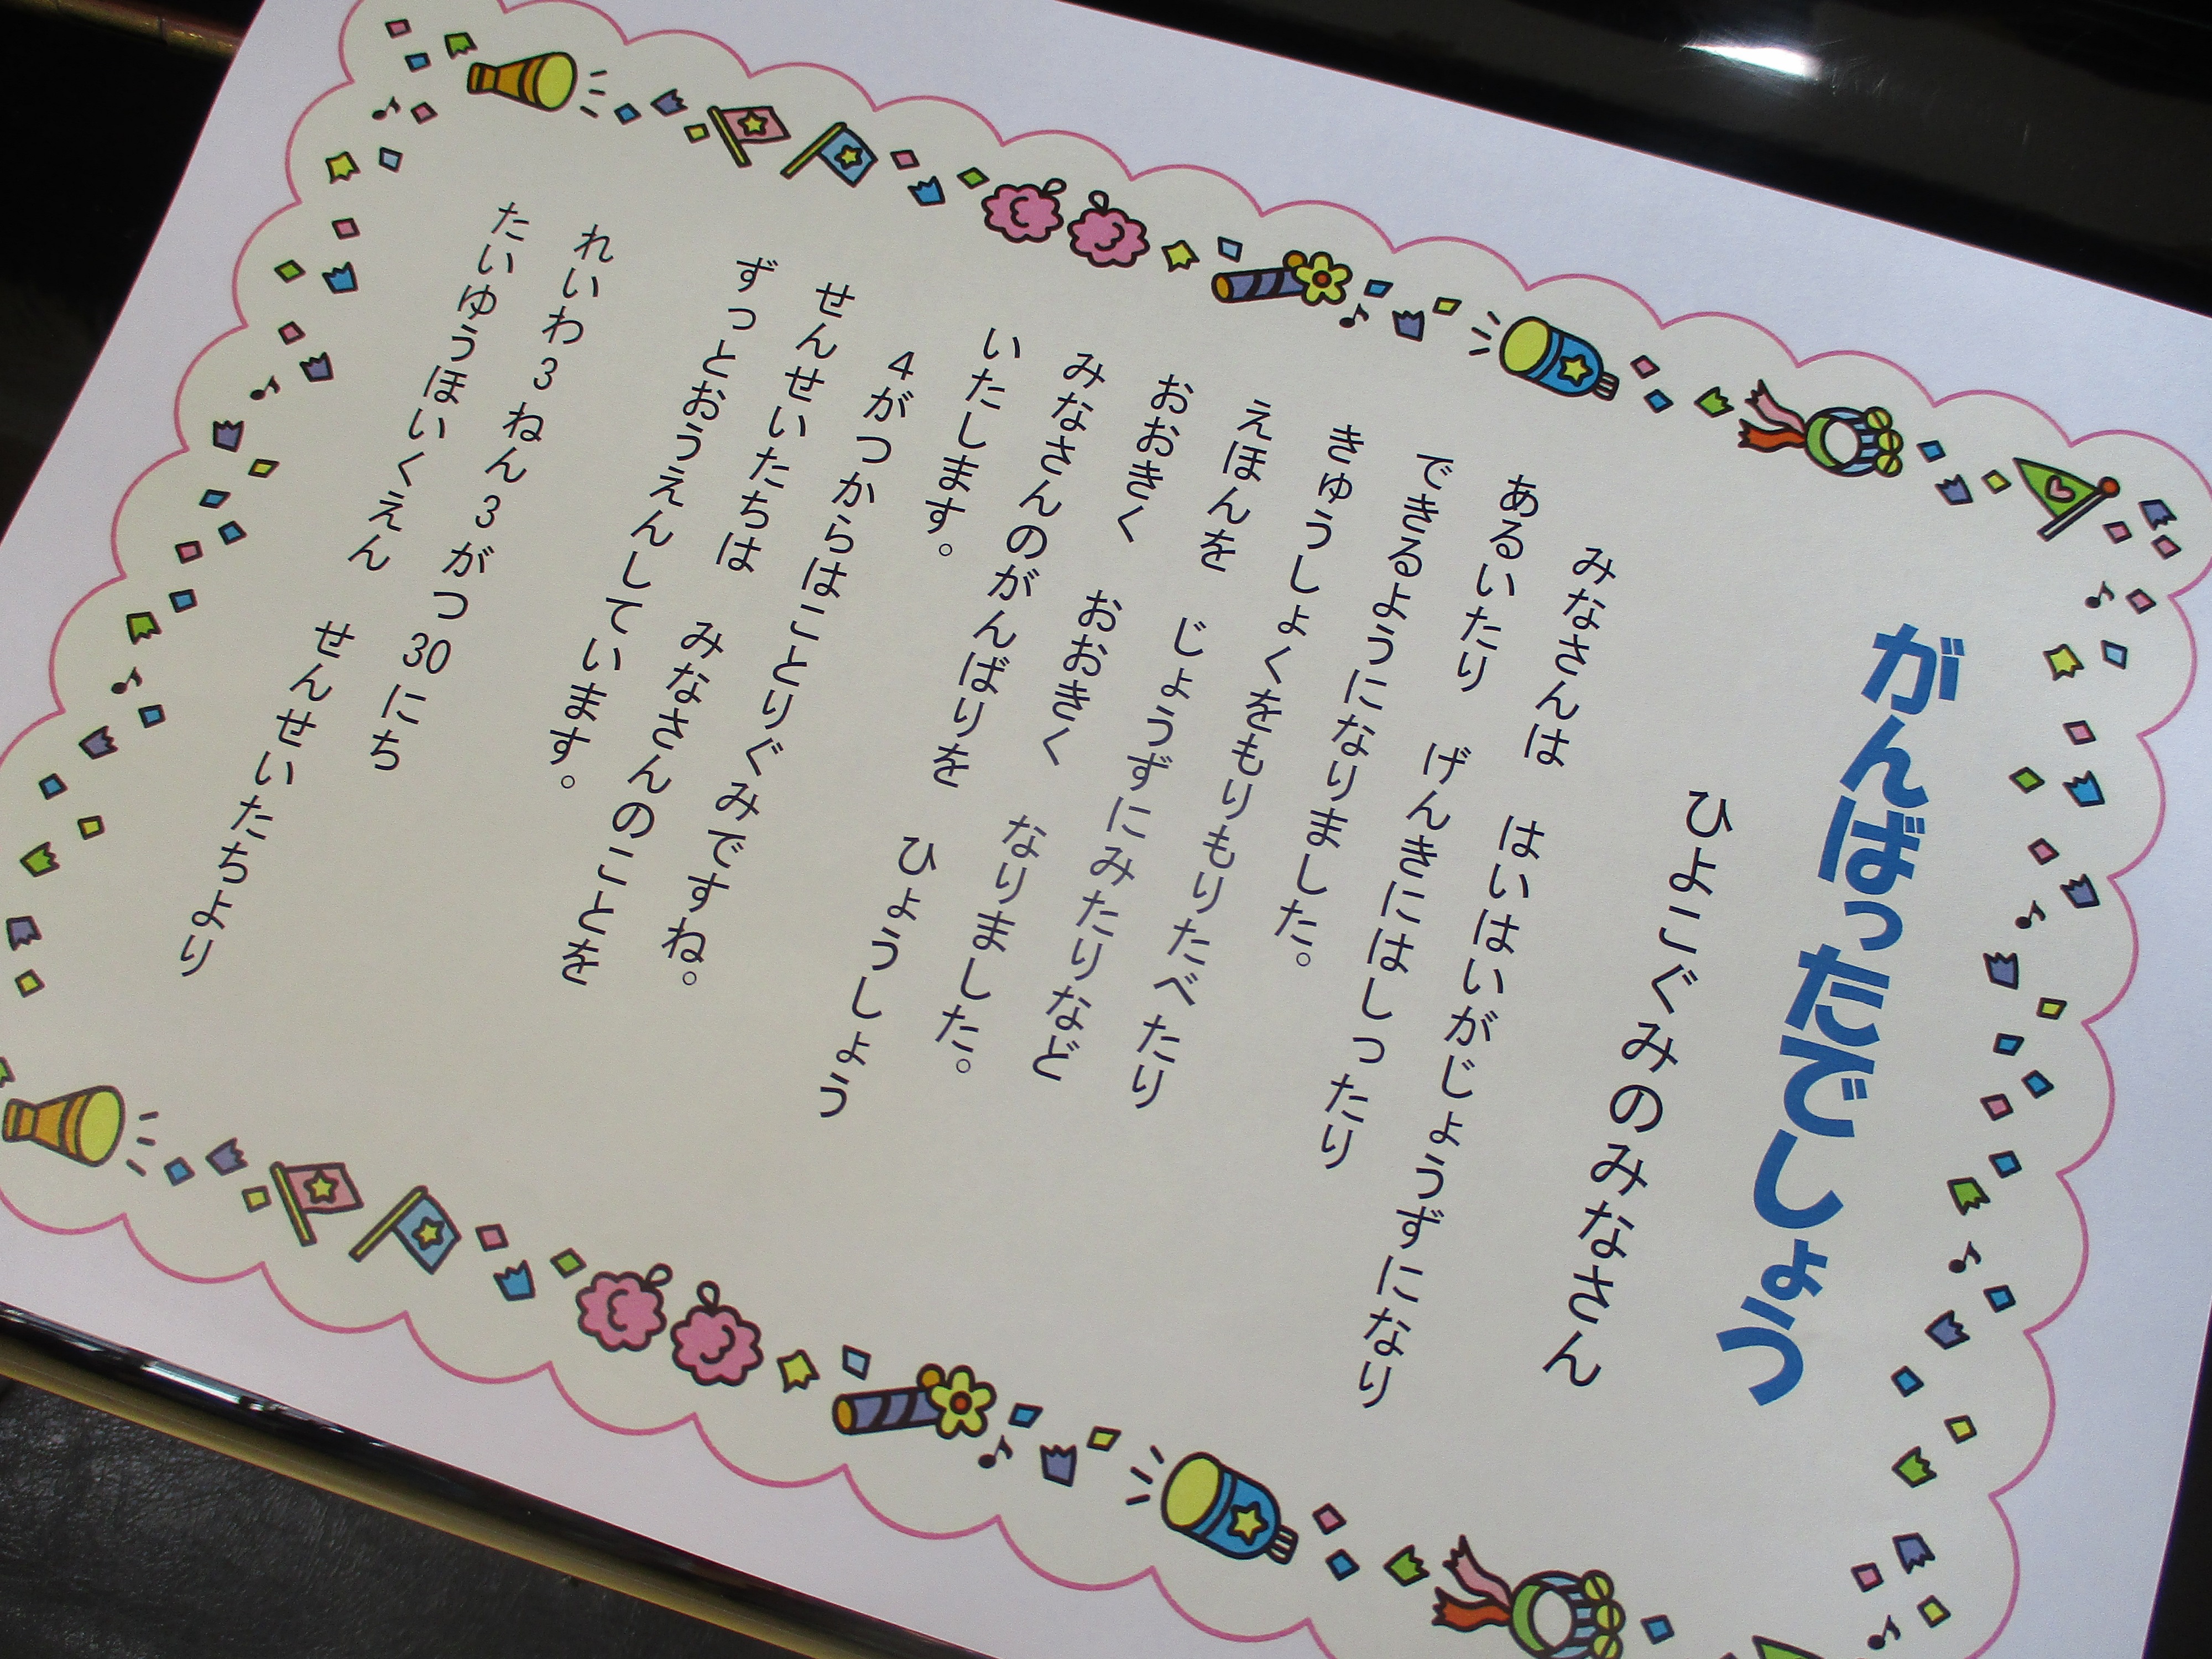 がんばったでしょう
ひよこぐみのみなさん
みなさんは　はいはいがじょうずになり
あるいたり　げんきにはしったり
できるようになりました。
きゅうしょくをもりもりたべたり
えほんを　じょうずにみたりなど
おおきく　おおきく　なりました。
みなさんのがんばりを　ひょうしょう
いたします。
4がつからはことりぐみですね。
せんせいたちは　みなさんのことを
ずっとおうえんしています。
れいわ3ねん3がつ30にち
たいゆうほいくえん　せんせいたちより